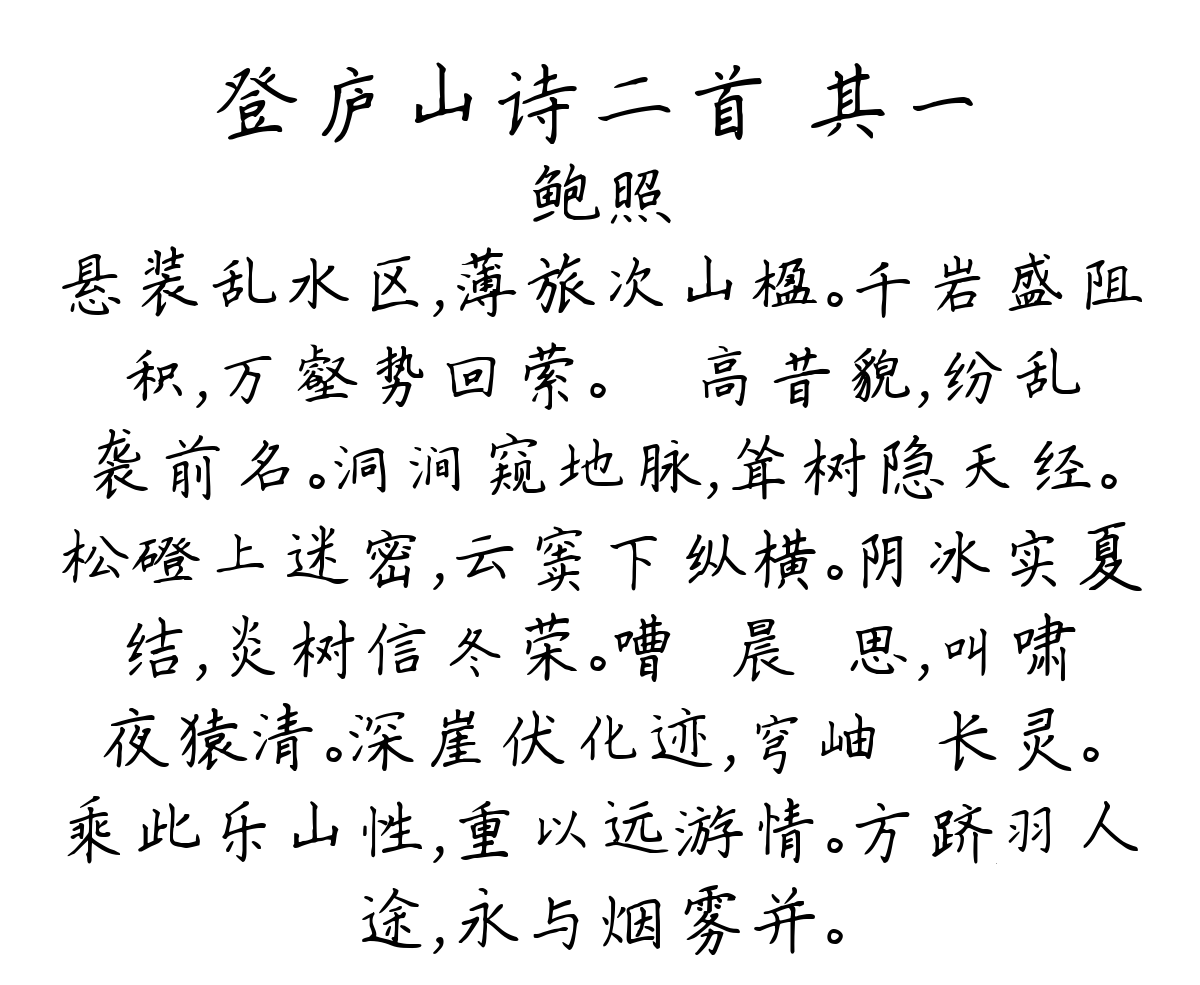 登庐山诗二首 其一
鲍照
悬装乱水区,薄旅次山楹。千岩盛阻
积,万壑势回萦。 高昔貌,纷乱
袭前名。洞涧窥地脉,耸树隐天经。
松磴上迷密,云窦下纵横。阴冰实夏
结,炎树信冬荣。嘈 晨 思,叫啸
夜猿清。深崖伏化迹,穹岫 长灵。
乘此乐山性,重以远游情。方跻羽人
途,永与烟雾并。